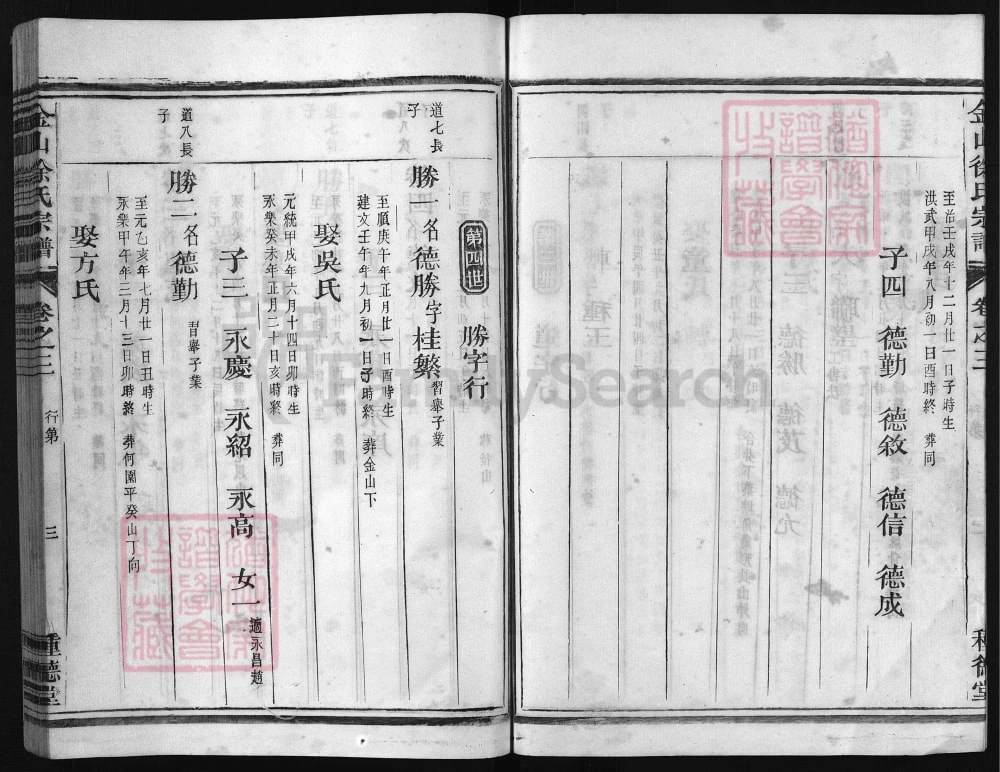 金山徐氏宗譜
卷之三
種德堂
至治壬戌年十二月廿一日子時生
洪武甲戌年八月初一日酉時終 葬同
子四 德勤 德敘 德信 德成
第四世
勝字行
道七長子
勝一名德勝字桂繁 習舉子業
至順庚午年正月廿一日酉時生
建文壬午年九月初一日子時終 葬金山下
娶吳氏
元統甲戌年六月十四日卯時生
永樂癸未年正月二十日亥時終 葬同
子三 永慶 永紹 永高 女一 適永昌趙
道八長子
勝二名德勤 習舉子業
至元乙亥年七月廿一日丑時生
永樂甲午年三月十三日卯時終 葬何園平癸山丁向
娶方氏
金山徐氏宗譜
卷之三
行第
三
種德堂
FamilySearch